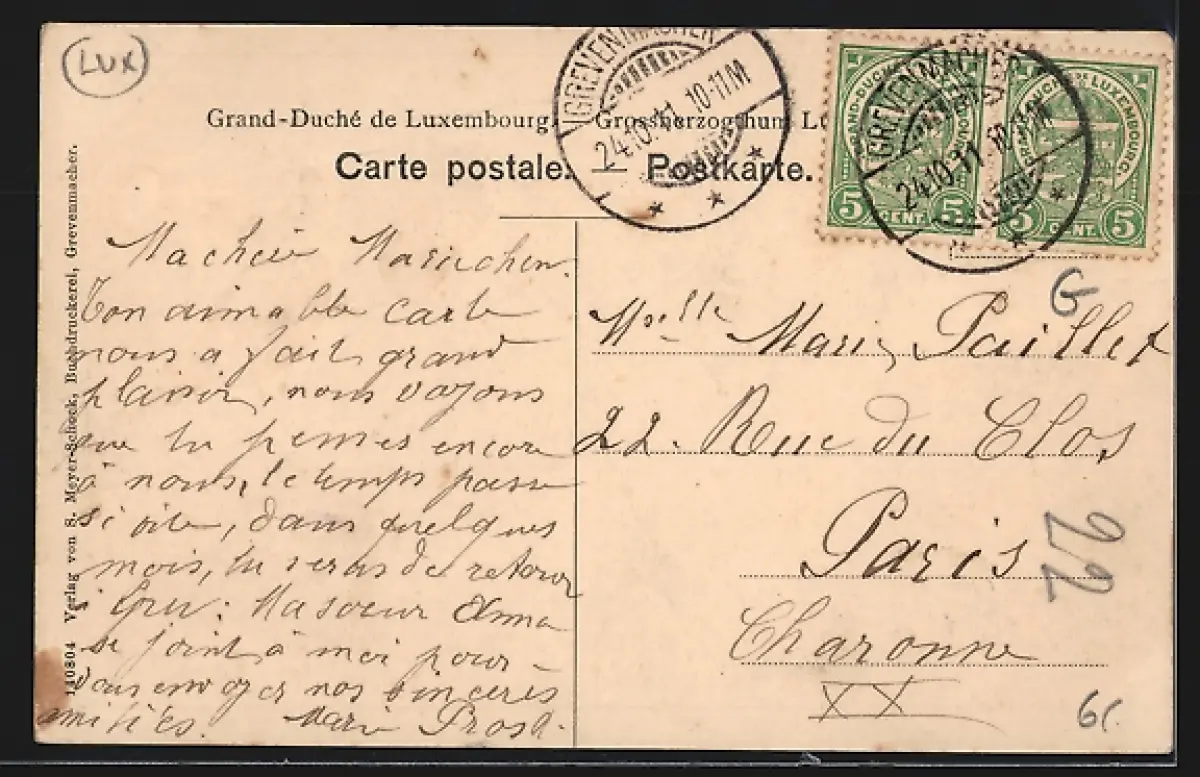 LUX
Grand-Duché de Luxembourg. — Grossherzogthum Lu
Carte postale. — Postkarte.
GREVENMACHER
24.10.11. 10-11M
GREVENMACHER
24.10.11. 10-11M
GRAND-DUCHÉ
5 CENT. 5
GRAND-DUCHÉ DE LUXEMBOURG.
5 CENT. 5
110804 Verlag von S. Meyer-Schock, Buchdruckerei, Grevenmacher.
Ma chère Mariechen.
Ton aimable carte
nous a fait grand
plaisir, nous voyons
que tu penses encore
à nous, le temps passe
si vite, dans quelques
mois, tu seras de retour
Ma soeur
se joint à moi pour
vous envoyer nos sincères
amitiés. Marie Prost.
G
Mselle Marie Paillet
22. Rue du Clos
Paris
22
Charonne
XX